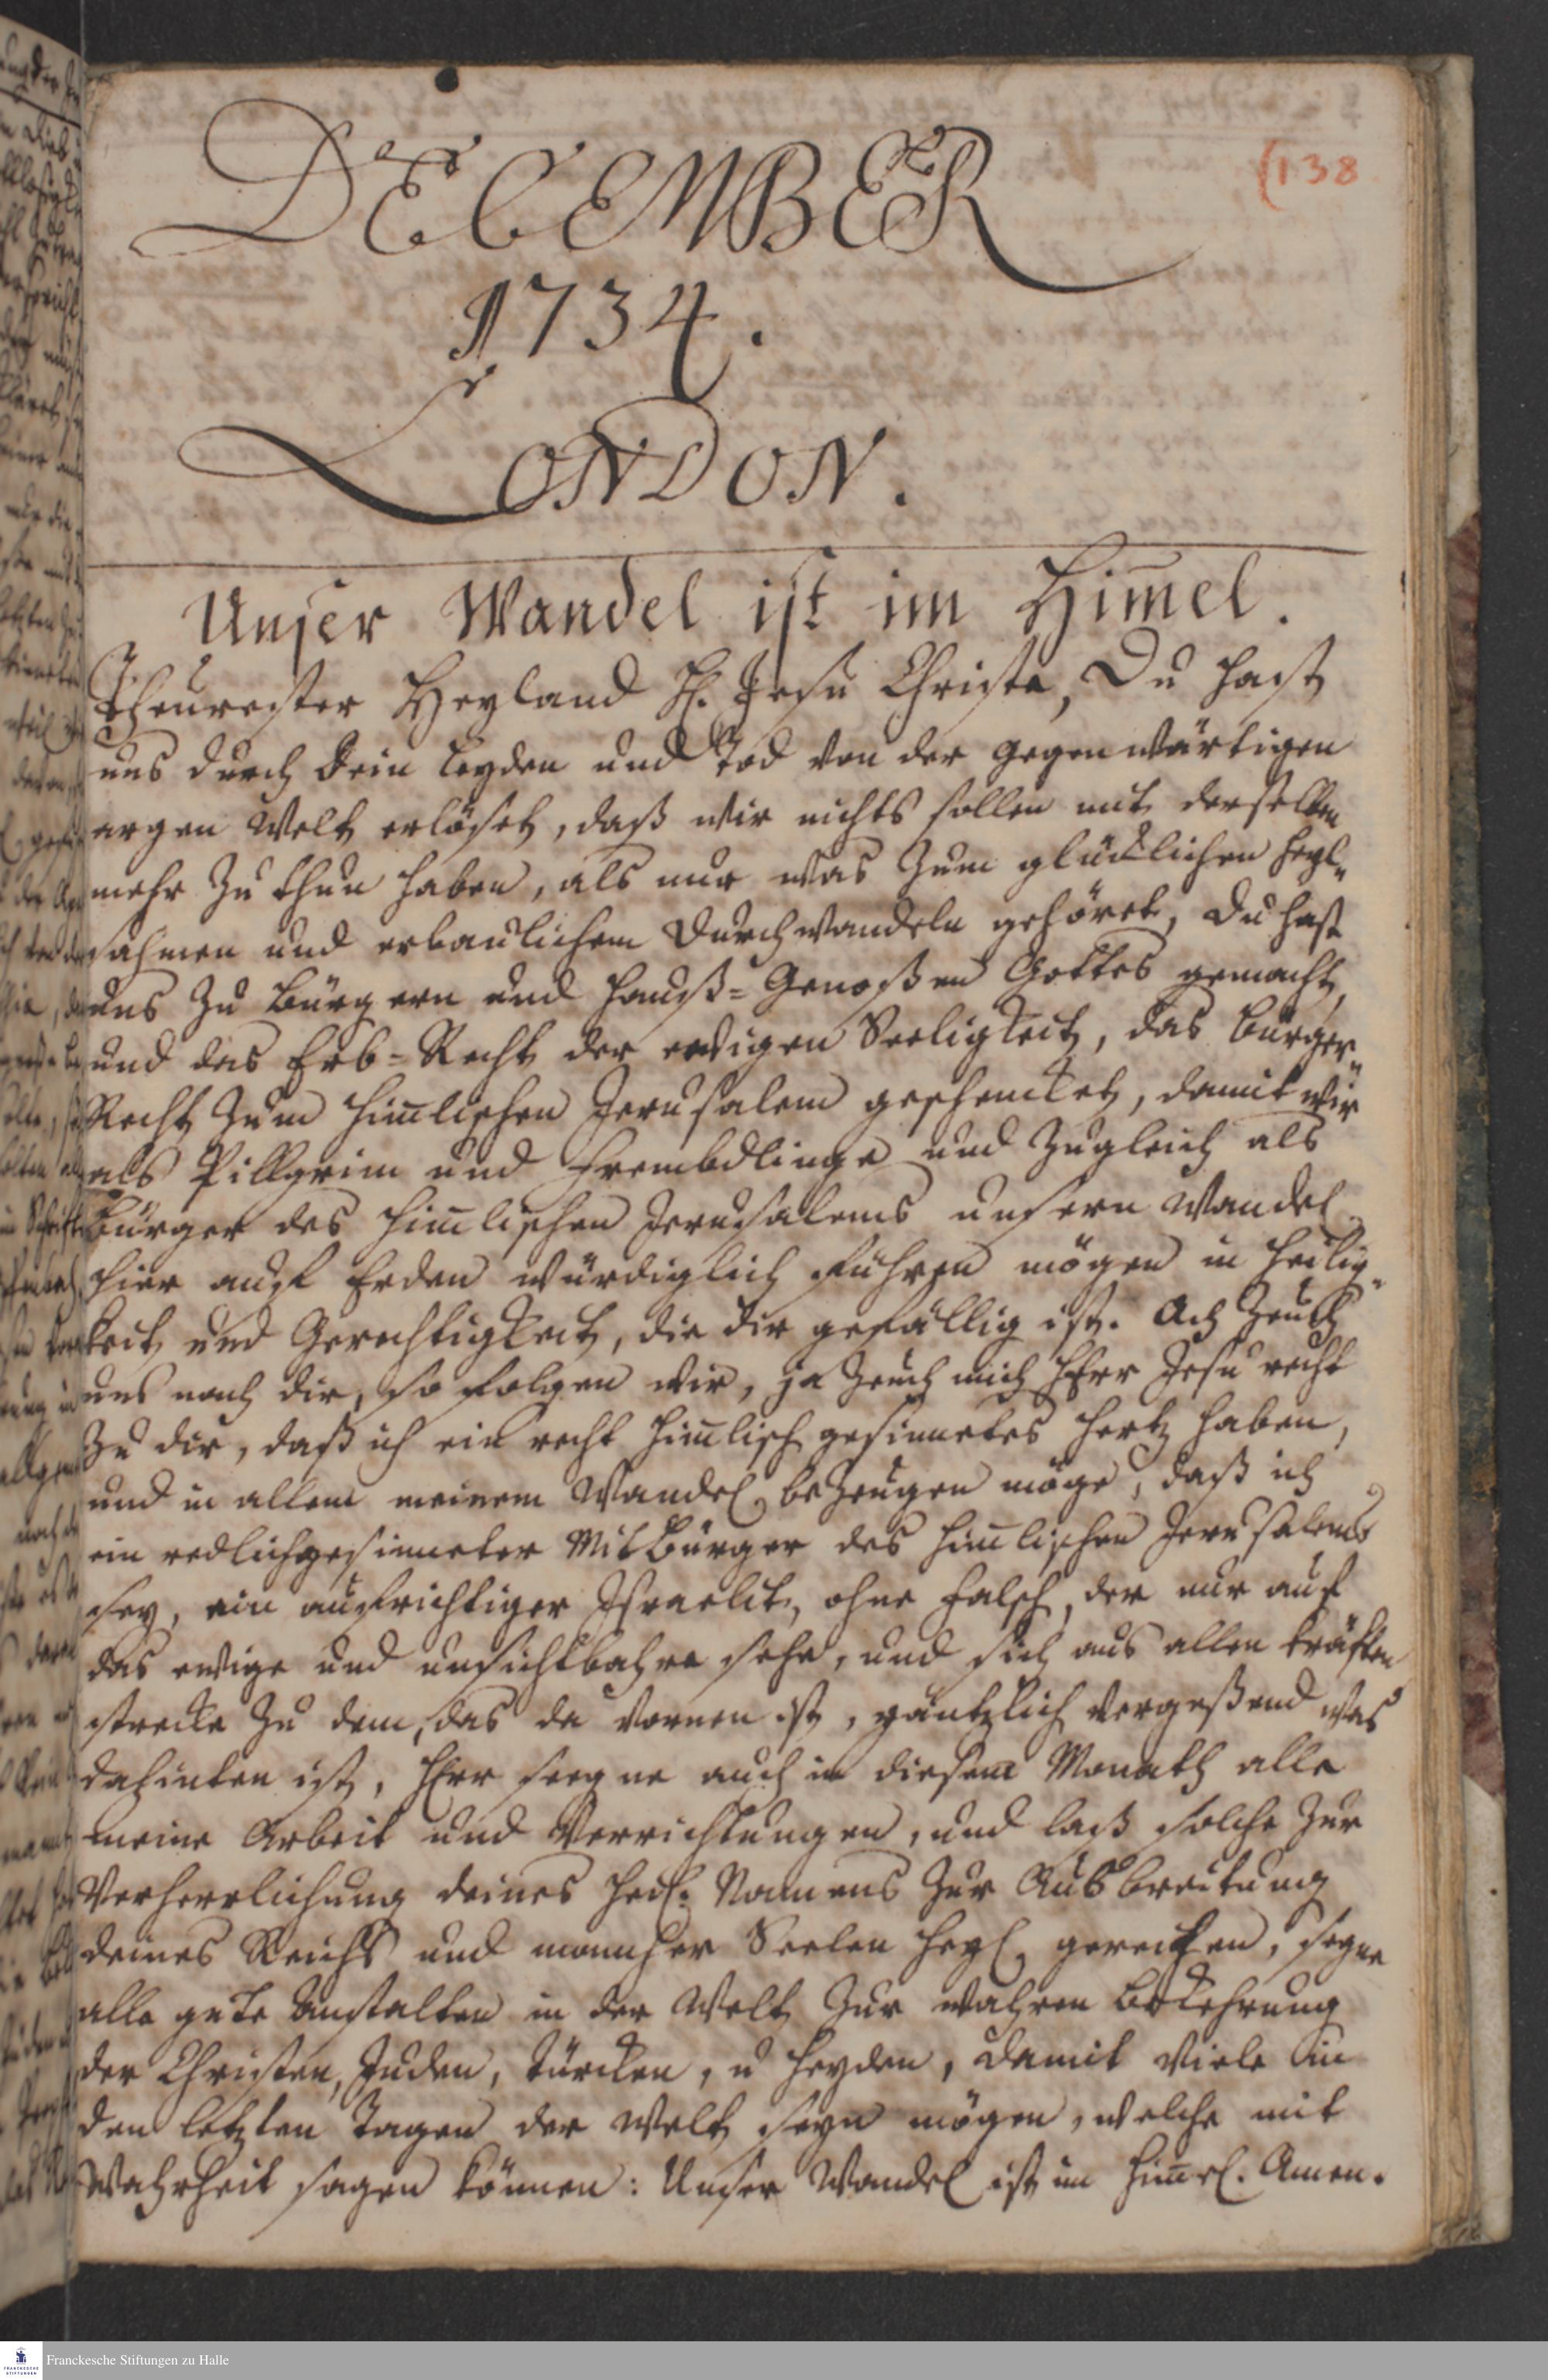 (138
DECEMBER
1734.
LONDON.
Unser Wandel ist im Him̄el.
Theurester Heyland H. Jesu Christe, Du hast
uns durch dein Leyden und Tod von der gegenwärtigen
argen Welt erlöset, daß wir nichts sollen mit derselben
mehr zu thun haben, als nur was zum glücklichen heyl-
sahmen und erbaulichem Durchwandeln gehöret, Du hast
uns zu Bürgern und Hauß-Genoßen Gottes gemacht,
und das Erb-Recht der ewigen Seeligkeit, das Bürger-
Recht zum him̄lischen Jerusalem geschencket, damit wir
als Pillgrim und Frembdlinge und zugleich als
Bürger des him̄lischen Jerusalems unsern Wandel
hier auf Erden würdiglich führen mögen in Heilig-
keit und Gerechtigkeit, die dir gefällig ist. Ach zeuch
uns nach dir, so folgen wir, ja zeuch mich HErr Jesu recht
zu dir, daß ich ein recht him̄lisch gesinnetes Hertz haben,
und in allem meinem Wandel bezeugen möge, daß ich
ein redlichgesinneter Mitbürger des him̄lischen Jerusalems
sey, ein aufrichtiger Israelit, ohne falsch, der nur auf
das ewige und unsichtbahre sehe, und sich aus allen kräften
strecke zu dem, das da vornen ist, gäntzlich vergeßend was
dahinten ist, HErr seegne auch in diesem Monath alle
meine Arbeit und Verrichtungen, und laß solche zur
Verherrlichung deines Heil. Namens zur Ausbreitung
deines Reichs und mancher Seelen Heyl gereichen, segne
alle gute Anstalten in der Welt zur wahren Bekehrung
der Christen, Juden, Türcken, u Heyden, damit viele in
den letzten Tagen der Welt seyn mögen, welche mit
Wahrheit sagen können: Unser Wandel ist im Him̄el. Amen.
FRANCKESCHE
STIFTUNGEN
Franckesche Stiftungen zu Halle